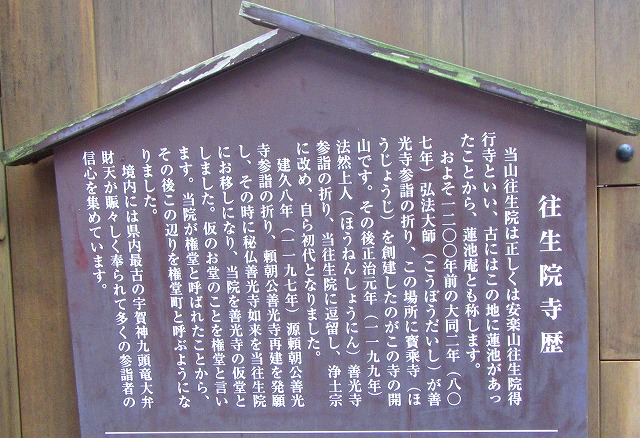 往生院寺歴
当山往生院は正しくは安楽山往生院得
行寺といい、古にはこの地に蓮池があっ
たことから、蓮池庵とも称します。
およそ一二〇〇年前の大同二年（八〇
七年）弘法大師（こうぼうだいし）が善
光寺参詣の折り、この場所に寶乗寺（ほ
うじょうじ）を創建したのがこの寺の開
山です。その後正治元年（一一九九年）
法然上人（ほうねんしょうにん）善光寺
参詣の折り、当往生院に逗留し、浄土宗
に改め、自ら初代となりました。
建久八年（一一九七年）源頼朝公善光
寺参詣の折り、頼朝公善光寺再建を発願
し、その時に秘仏善光寺如来を当往生院
にお移しになり、当院を善光寺の仮堂と
しました。仮のお堂のことを権堂と言い
ます。当院が権堂と呼ばれたことから、
その後この辺りを権堂町と呼ぶようにな
りました。
境内には県内最古の宇賀神九頭竜大弁
財天が賑々しく奉られて多くの参詣者の
信心を集めています。